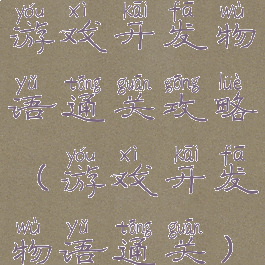 yóu xì kāi fā wù
游戏开发物
yǔ tōng guān gōng lüè
语通关攻略
yóu xì kāi fā
（游戏开发
wù yǔ tōng guān
物语通关）